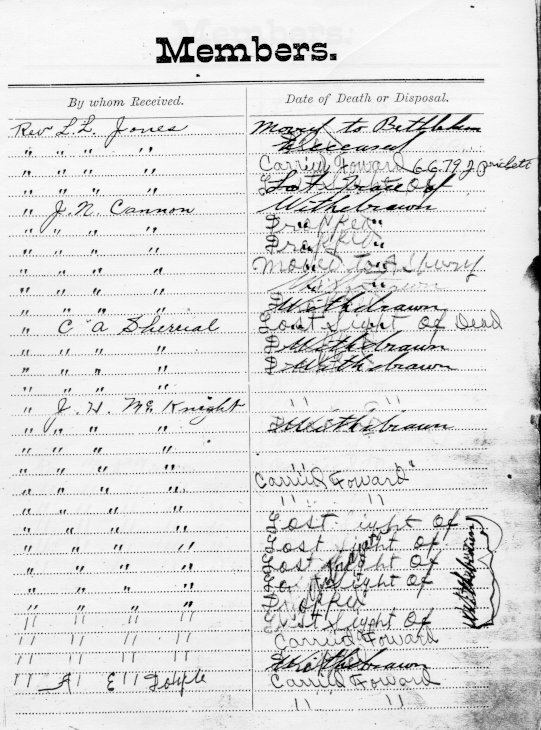 Members.
By whom Received. Date of Death or Disposal.
Rev L. L. Jones Moved to Bethlehem
" " " " Deceased
" " " " Carried Foward 6-6-79
" " " " Lost
" J. N. Cannon Withdrawn
" " " " Dropped
" " " " Dropped
" " " " Moved to
" " " "
" " " " Withdrawn
" C A Lost Sight of Dead
" " " " Withdrawn
" " " " Withdrawn
" " " "
" J. H. McKnight " "
" " " " Withdrawn
" " " "
" " " "
" " " " Carried Foward
" " " " " "
" " " " Lost Sight of
" " " " Lost Sight of
" " " " Lost Sight of
" " " " Lost Sight of
" " " " Dropped
" " " " Lost Sight of
" " " " Carried Foward
" " " " Withdrawn
" A " E " Carried Foward
" "
Withdrawn